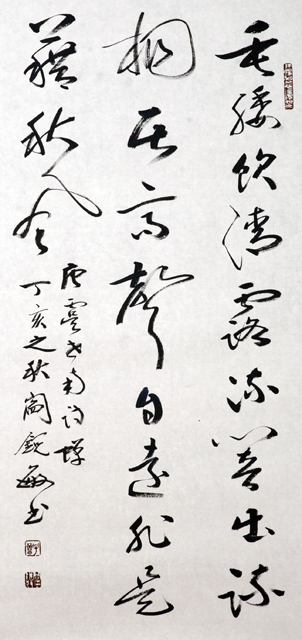 垂緌飲清露流響出疏
桐居高聲自遠非是
藉秋風
唐虞世南詩蟬
丁亥之秋閻銳敏書